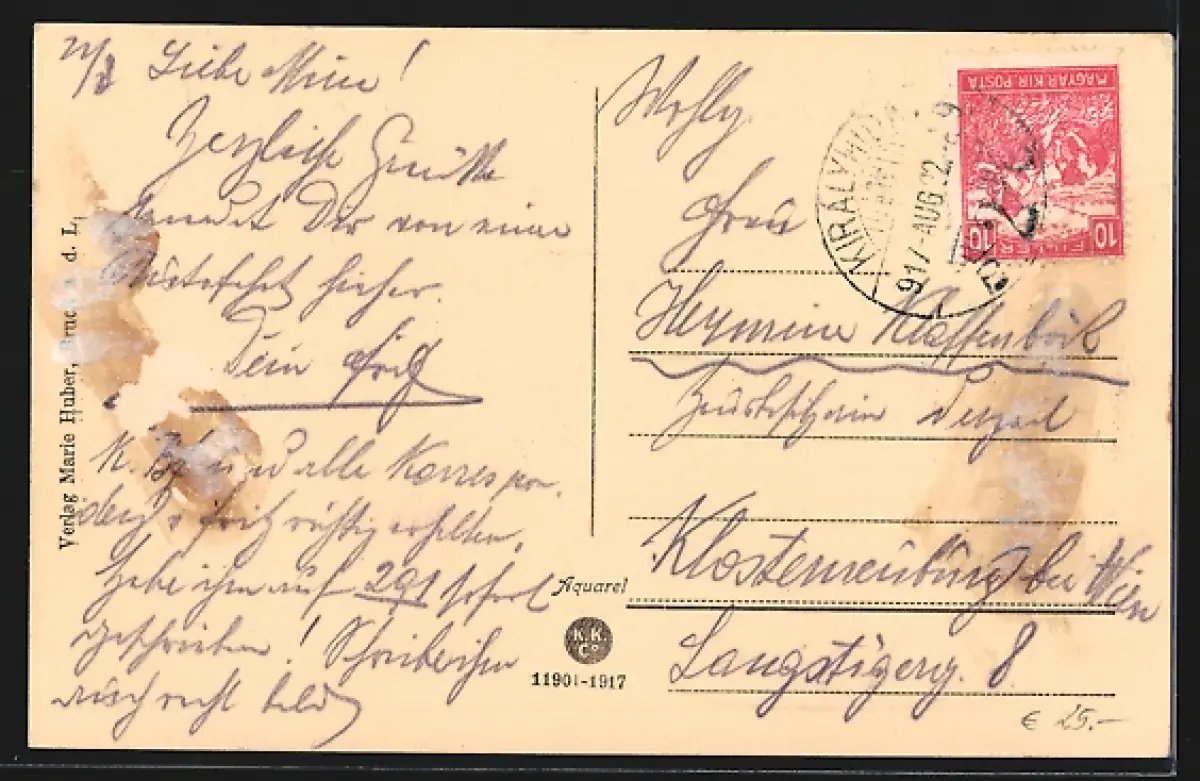 22/8 Liebe Mine!
Herzliche Grüße
sendet Dir von einer
hieher.
Dein Fritz
K. und alle Korrespon-
denz v. Fritz richtig erhalten,
habe ihm auf 29/ sofort
geschrieben! Schreibe ihm
auch recht bald
Verlag Marie Huber, Bruck a. d. L.
Aquarel
K. K.
Co
11901-1917
Wohlg.
Frau
Hermine Klaffenböck
Klosterneuburg bei Wien
Langstögerg. 8.
MAGYAR KIR. POSTA
10 FILLÉR 10
KIRÁLYHIDA
917 AUG 22
€ 25.-